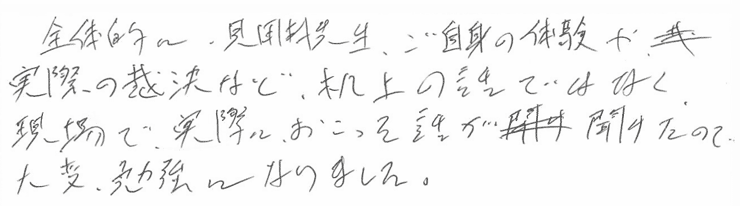 全体的に、見田村先生、ご自身の体験や、
実際の裁決など、机上の話ではなく、
現場で、実際に、おこった話が聞けたので、
大変、勉強になりました。